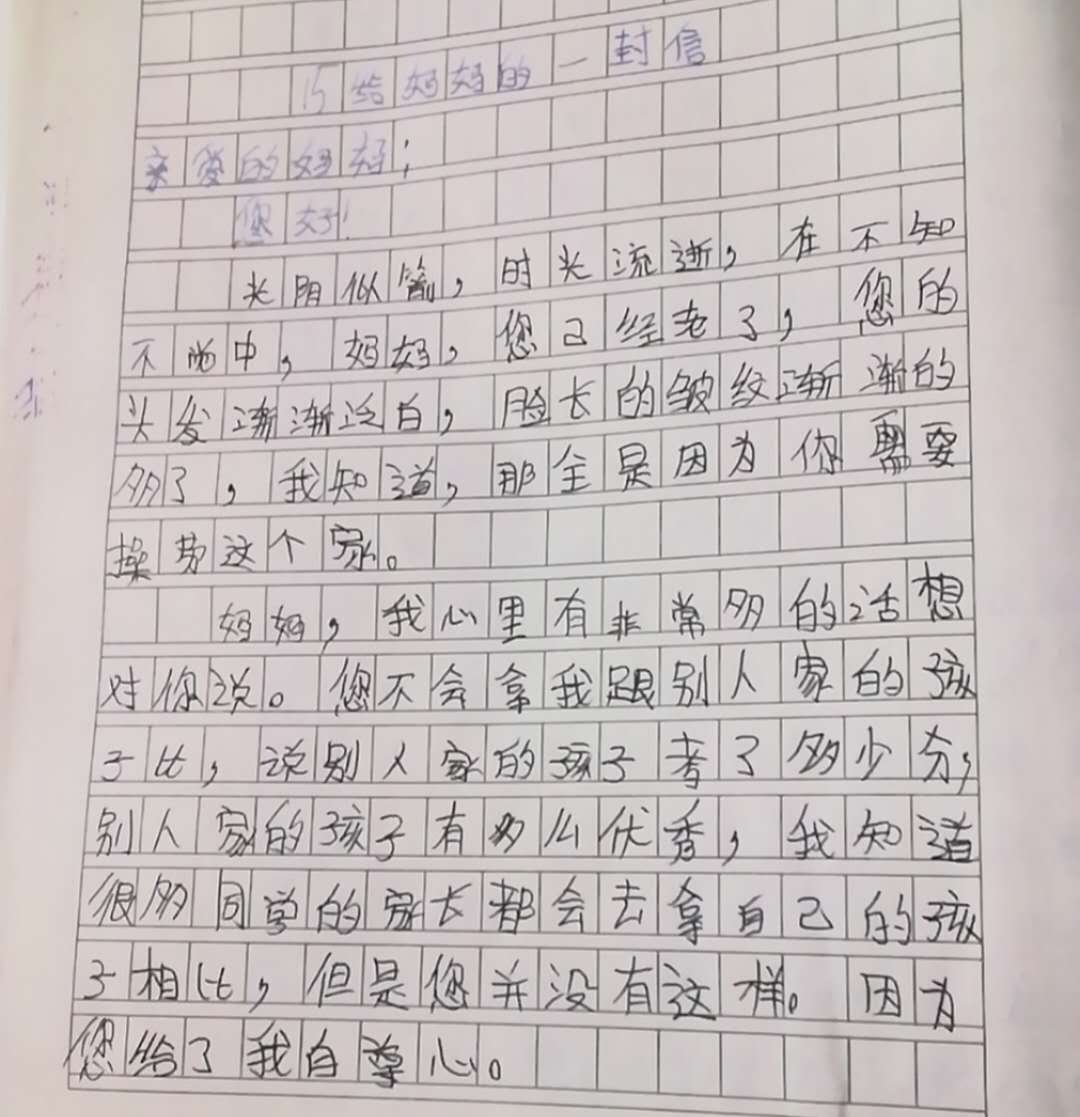 写给妈妈的一封信
亲爱的妈妈:
您好!
光阴似箭,时光流逝,在不知
不觉中,妈妈,您已经老了,您的
头发渐渐泛白,脸长的皱纹渐渐的
多了,我知道,那全是因为你需要
操劳这个家。
妈妈,我心里有非常多的话想
对你说。您不会拿我跟别人家的孩
子比,说别人家的孩子考了多少分,
别人家的孩子有多么优秀,我知道
很多同学的家长都会去拿自己的孩
子相比,但是您并没有这样。因为
您给了我自尊心。